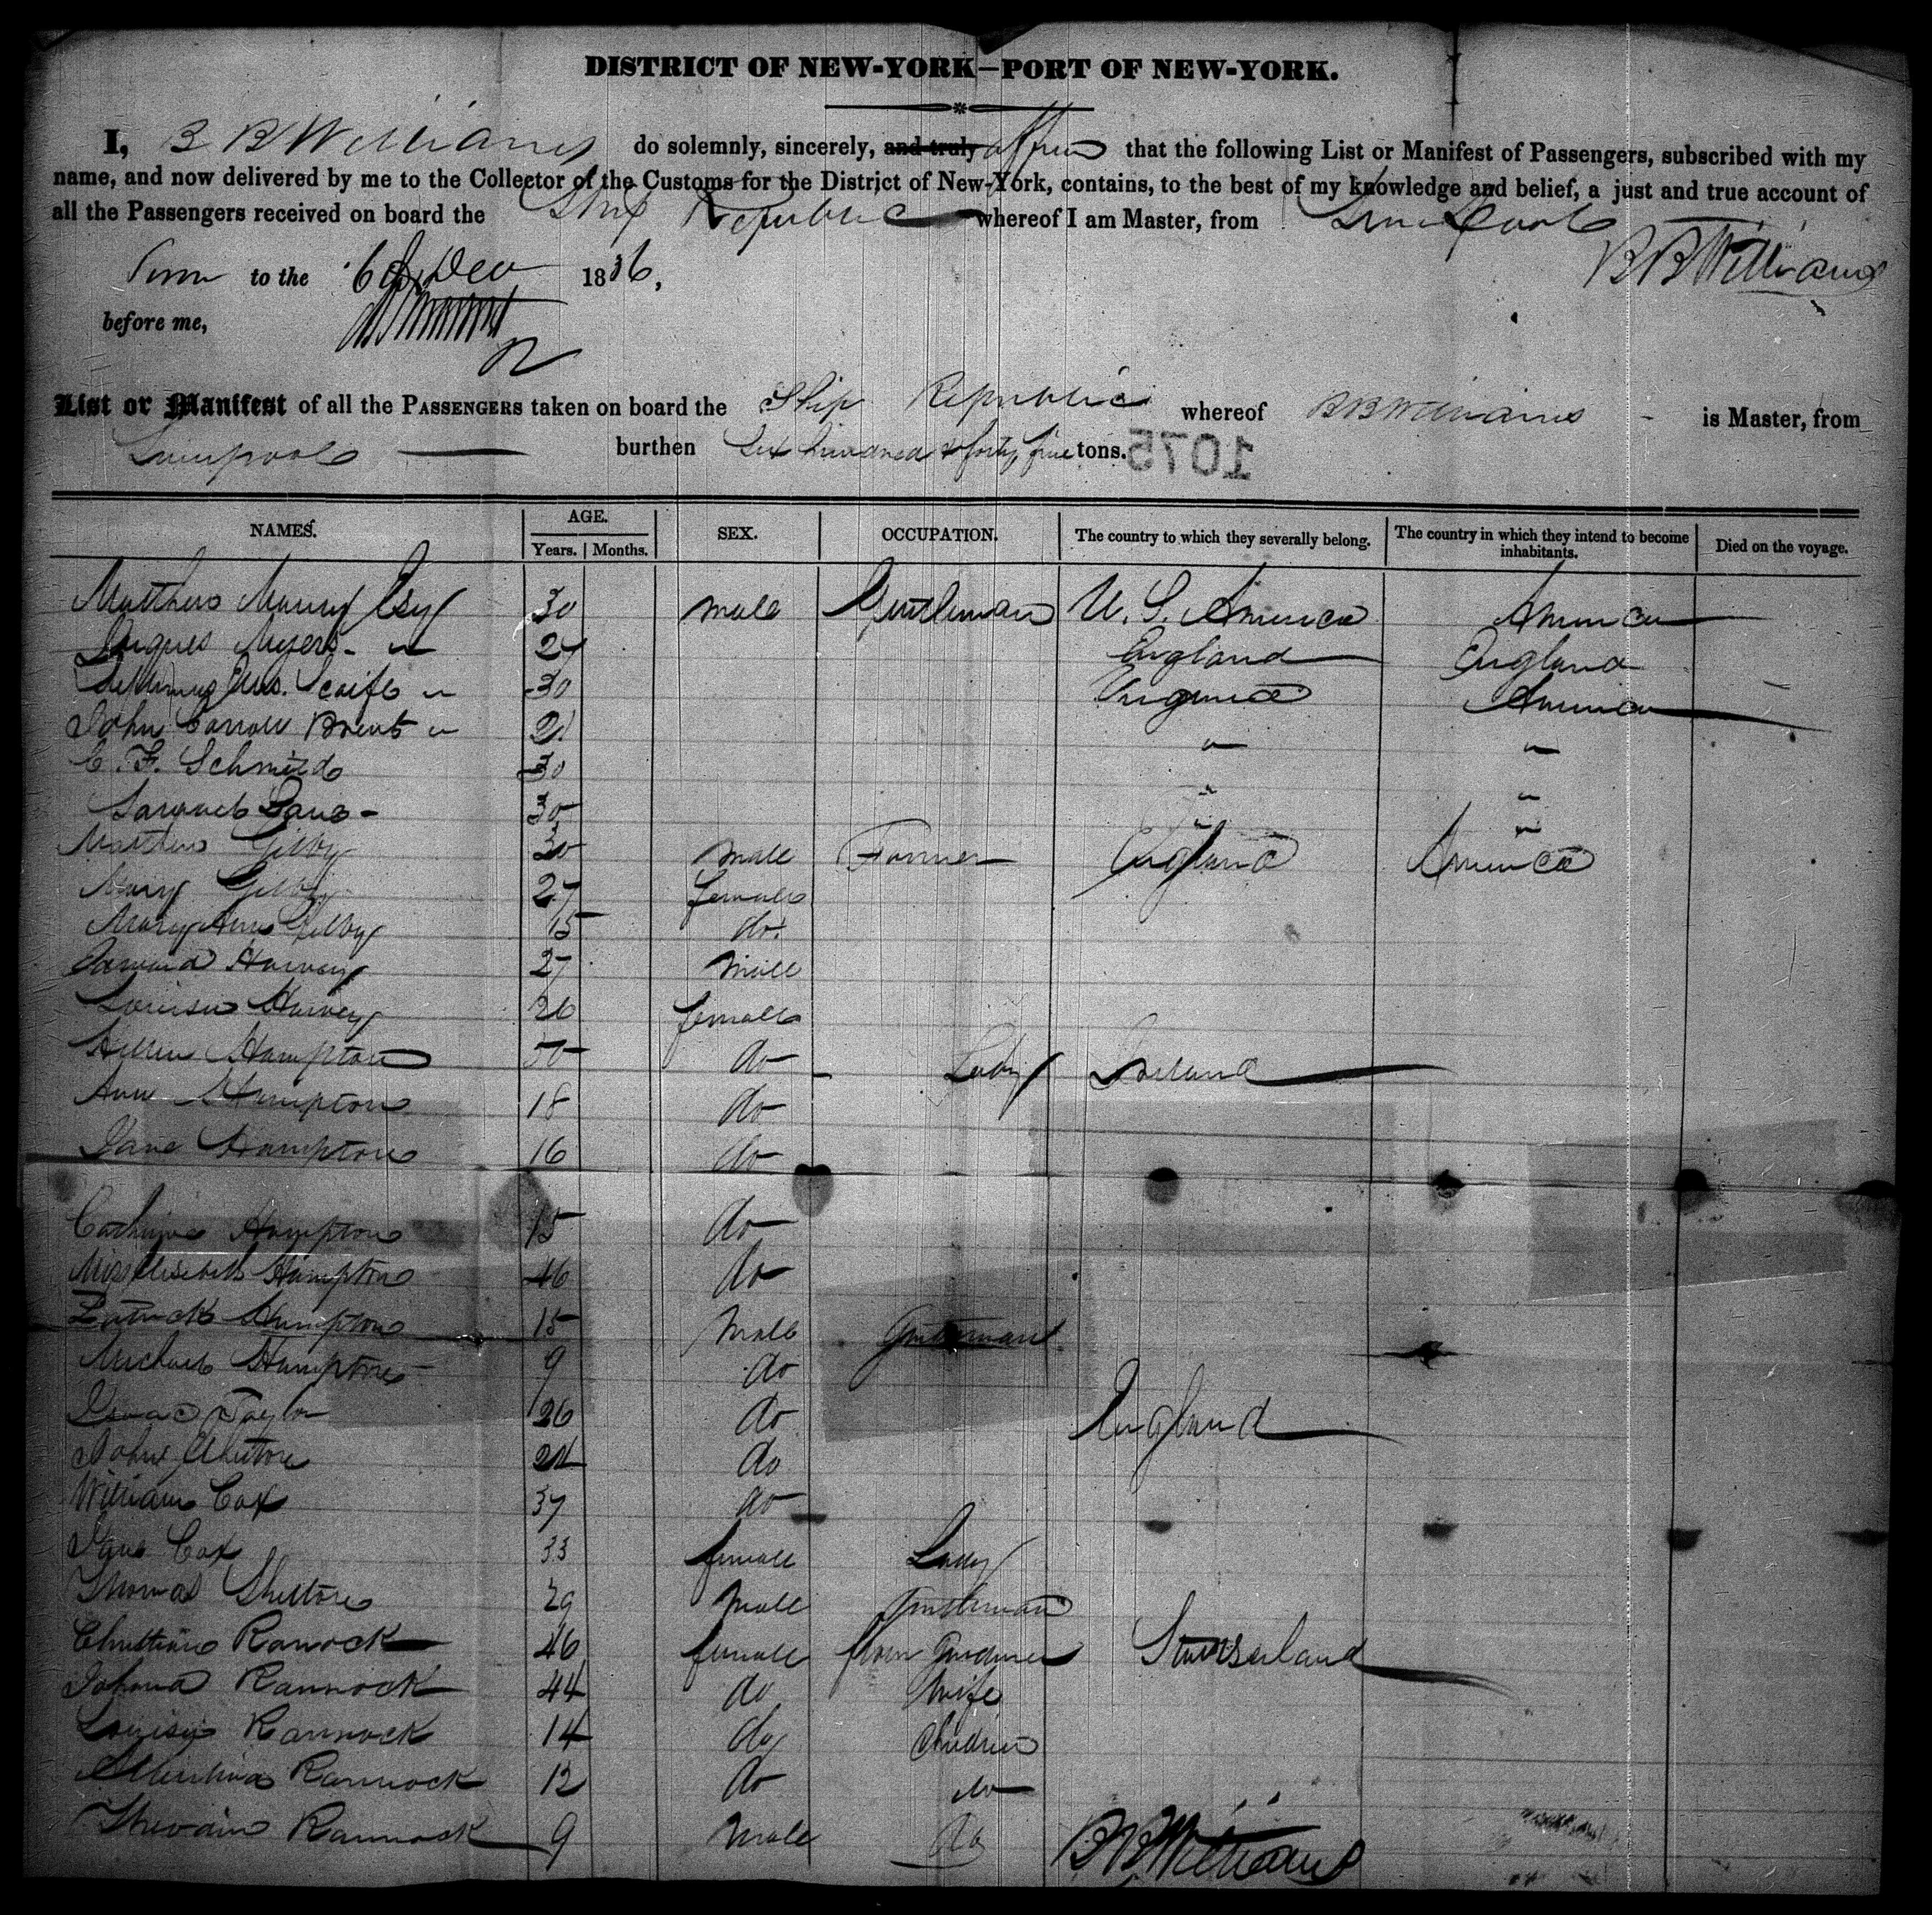 DISTRICT OF NEW-YORK—PORT OF NEW-YORK.
I, B B Williams do solemnly, sincerely, and truly affirm that the following List or Manifest of Passengers, subscribed with my
name, and now delivered by me to the Collector of the Customs for the District of New-York, contains, to the best of my knowledge and belief, a just and true account of
all the Passengers received on board the Ship Republic whereof I am Master, from Liverpool
B B Williams
to the 6 Dec 1836,
before me,
List or Manifest of all the PASSENGERS taken on board the Ship Republic whereof B B Williams is Master, from
Liverpool burthen Six hundred & forty five tons.
1075
NAMES. AGE. SEX. OCCUPATION. The country to which they severally belong. The country in which they intend to become inhabitants. Died on the voyage.
Years. Months.
Matthew Esq 30 male Gentleman U. S. America America
Myers 24 England England
Scaife 30 Virginia America
John Carroll Brent 21 " "
C. F. Schmidt 30 " "
Samuel 30 " "
Matthew Gilby 30 male Farmer England America
Mary Gilby 27 female
Mary Ann Gilby 15 do.
Edward Harvey 27 male
Louisa Harvey 26 female
Hampton 50 do Lady Ireland
Ann Hampton 18 do
Jane Hampton 16 do
Catherine Hampton 15 do
Miss Elisebeth Hampton 46 do
Patrick Hampton 15 Male Gentleman
Michael Hampton 9 do
Isaac Taylor 26 do England
John 24 do
William Cox 37 do
Jane Cox 33 female Lady
Thomas Shelton 29 Male Gentleman
Christian Rannock 46 female Gardener
Johana Rannock 44 do Wife
Louisa Rannock 14 do Children
Rannock 12 do do
Rannock 9 Male do
B B Williams